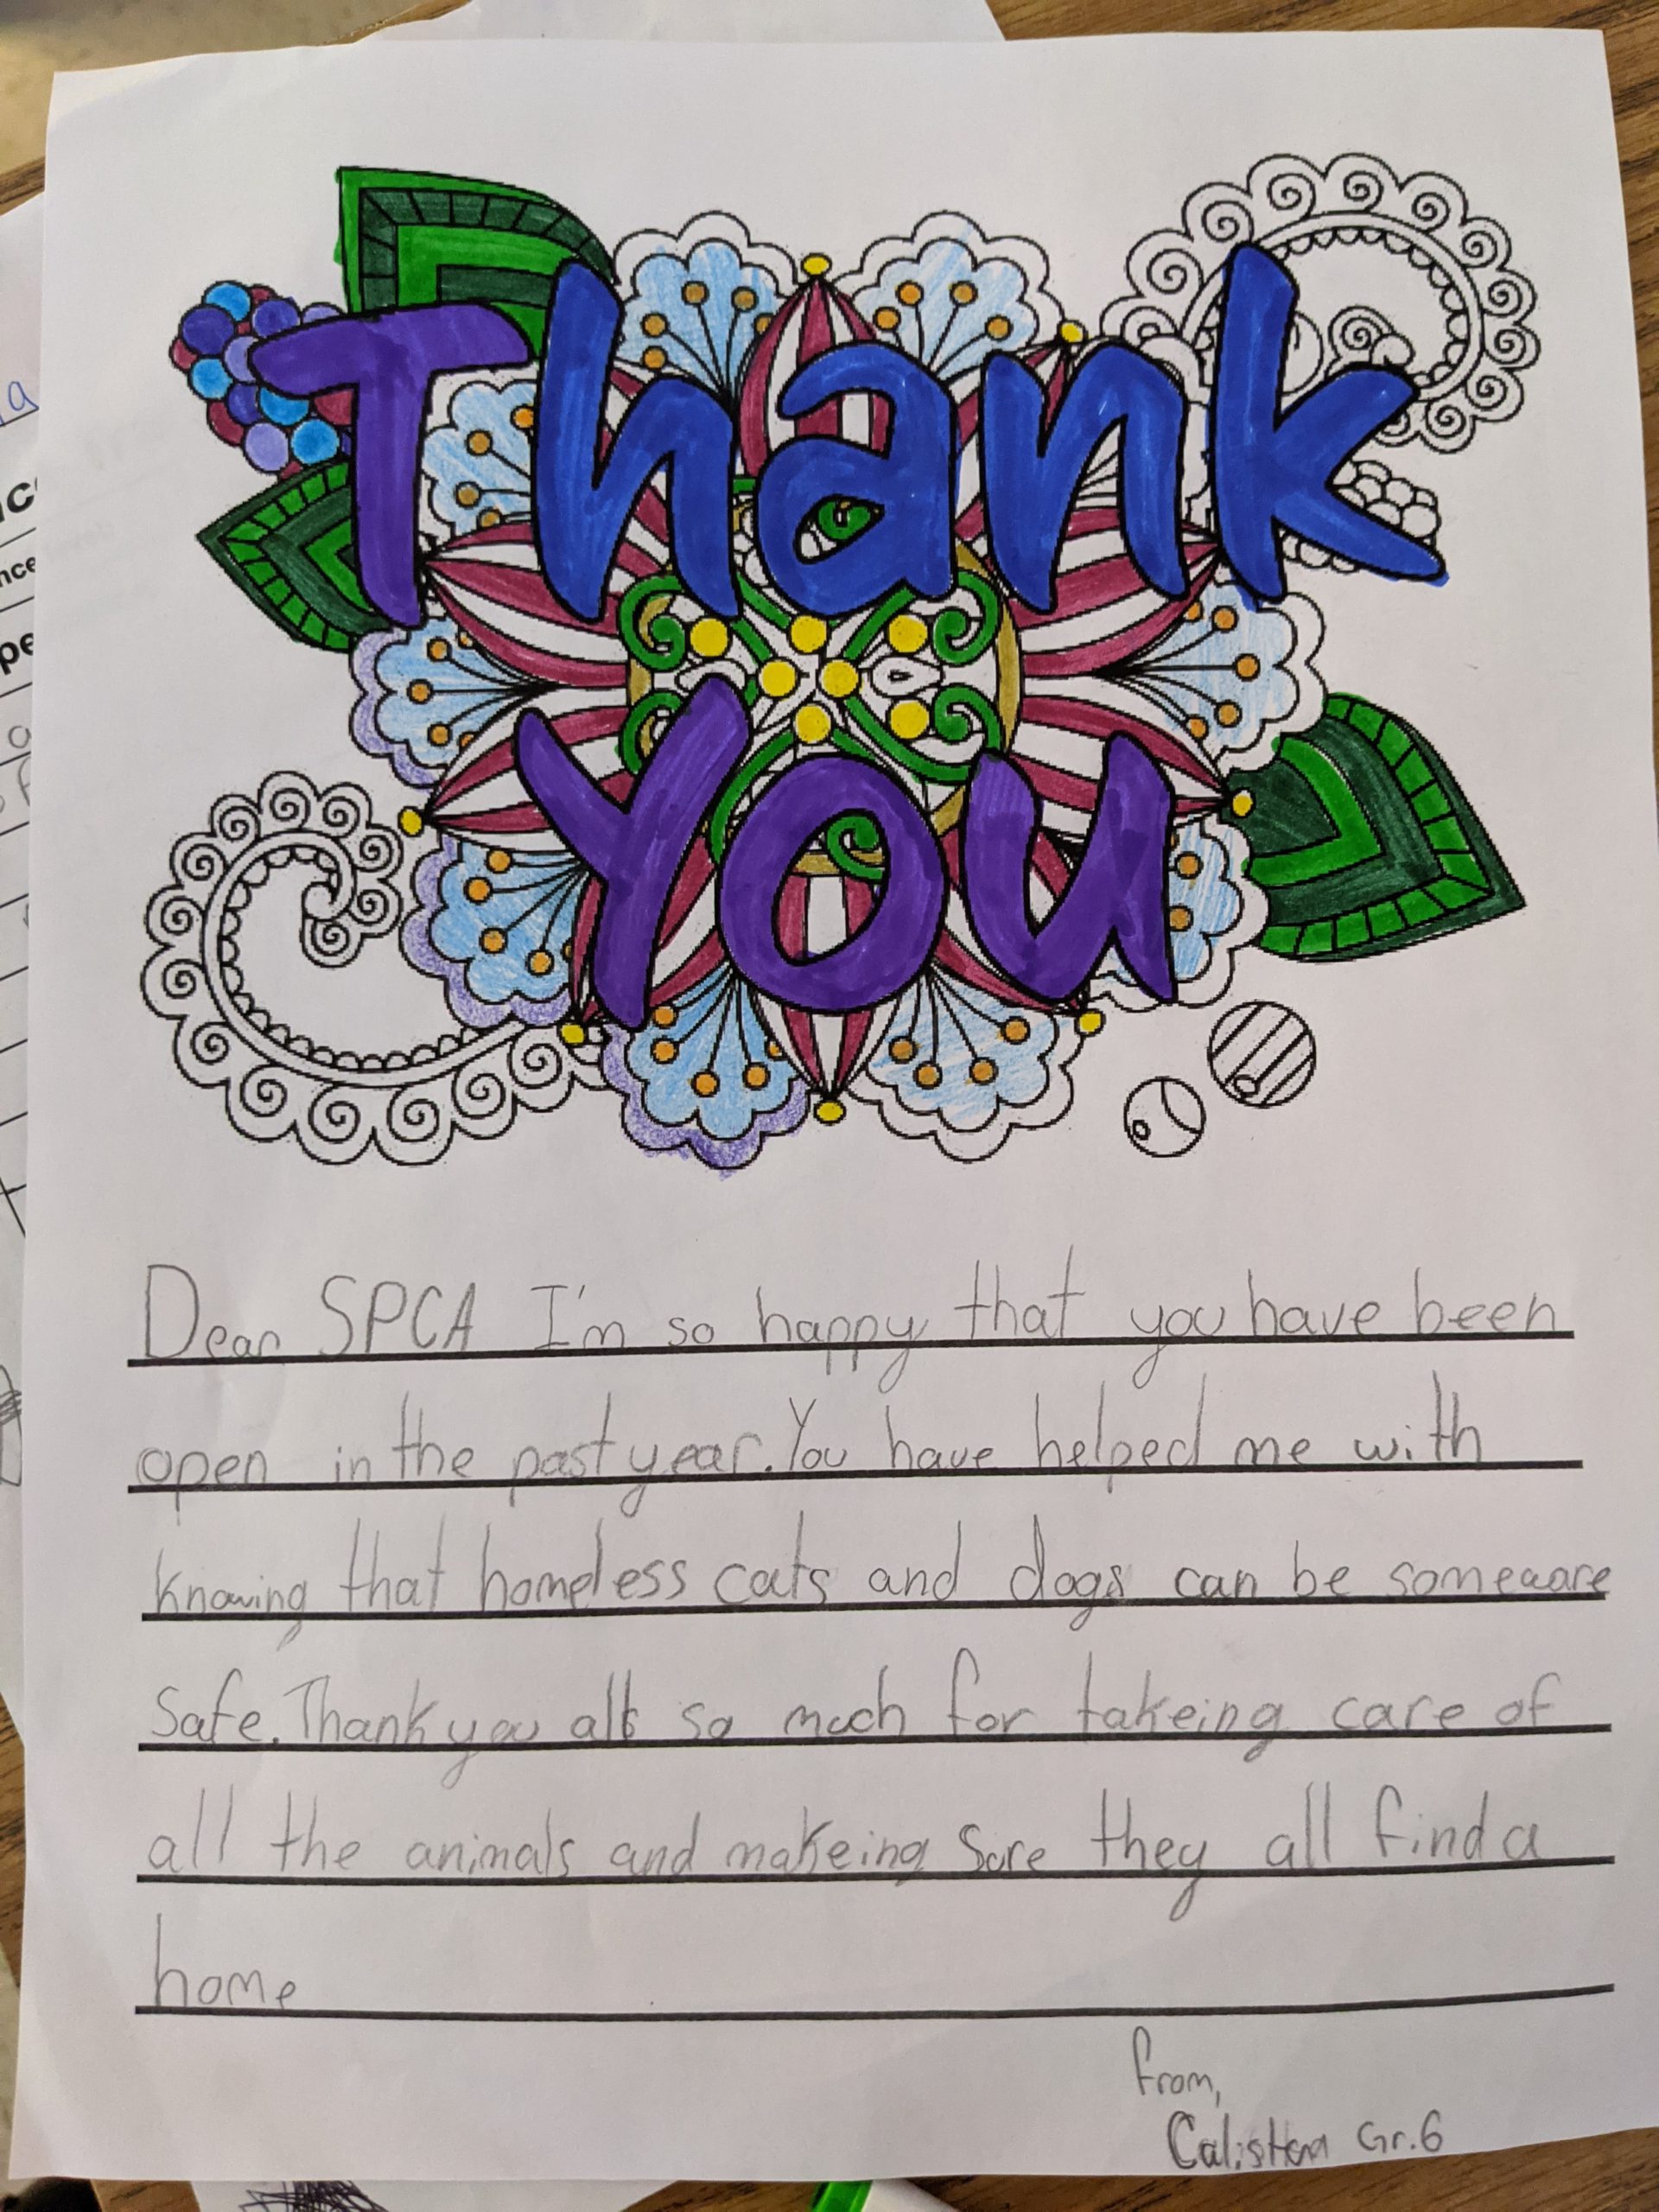 Thank
You
Dear SPCA I'm so happy that you have been
open in the past year. You have helped me with
knowing that homeless cats and dogs can be someware
safe. Thank you all so much for takeing care of
all the animals and makeing sure they all find a
home
from,
Gr.6